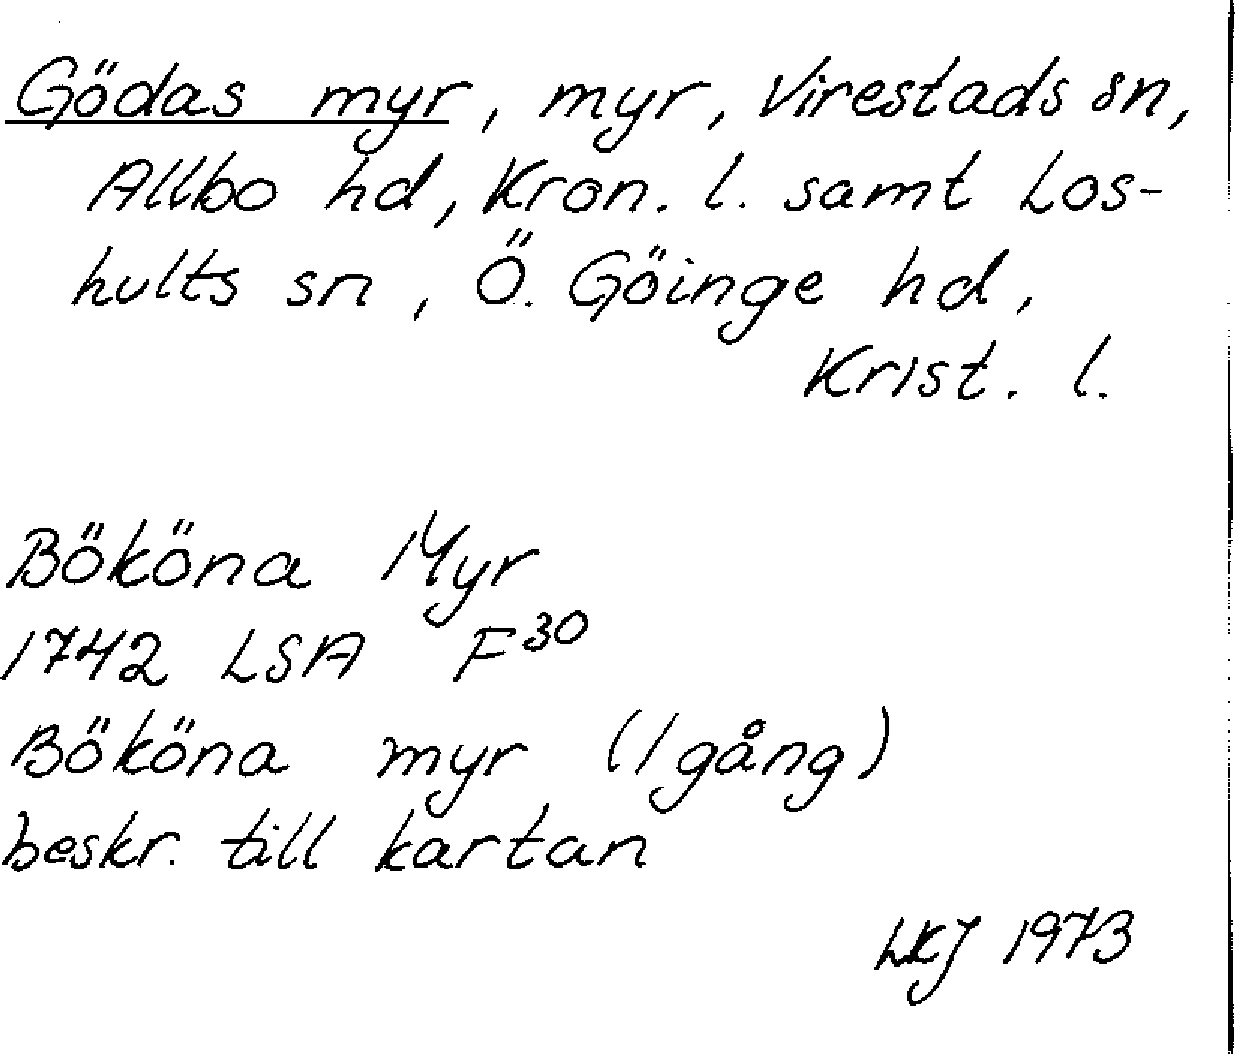 Gödas myr, myr, Virestads sn,
Allbo hd, Kron. l. samt Los-
hults sn, Ö. Göinge hd,
Krist. l.
Bököna Myr
1742 LSA F30
Bököna myr (1 gång)
beskr. till kartan
LKJ 1973